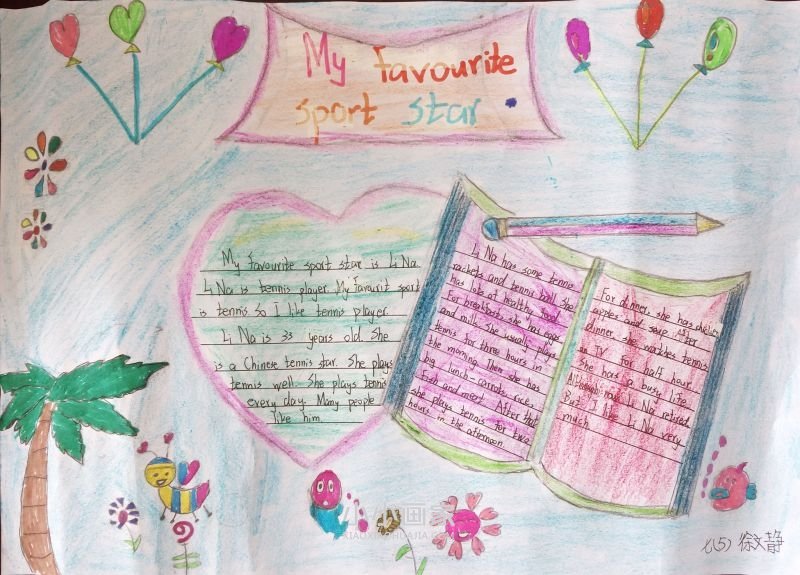 My favourite
sport star
My favourite sport star is Li Na.
Li Na is tennis player. My favourit sport
is tennis. So I like tennis player.
Li Na is 33 years old. She
is a Chinese tennis star. She plays
tennis well. She plays tennis
every day. Many people
like him.
Li Na has some tennis
rackets and tennis ball. She
has lots of healthy food.
For breakfast, she has eggs
and milk. She usually plays
tennis for three hours in
the morning. Then she has
big lunch-carrots, rice,
fish and meat. After that
she plays tennis for two
hours in the afternoon.
For dinner, she has
apples and soup. After
dinner she watches tennis
on TV for half hour.
She has a busy life.
Although now Li Na retired.
But I like Li Na very
much.
七(5) 徐文静